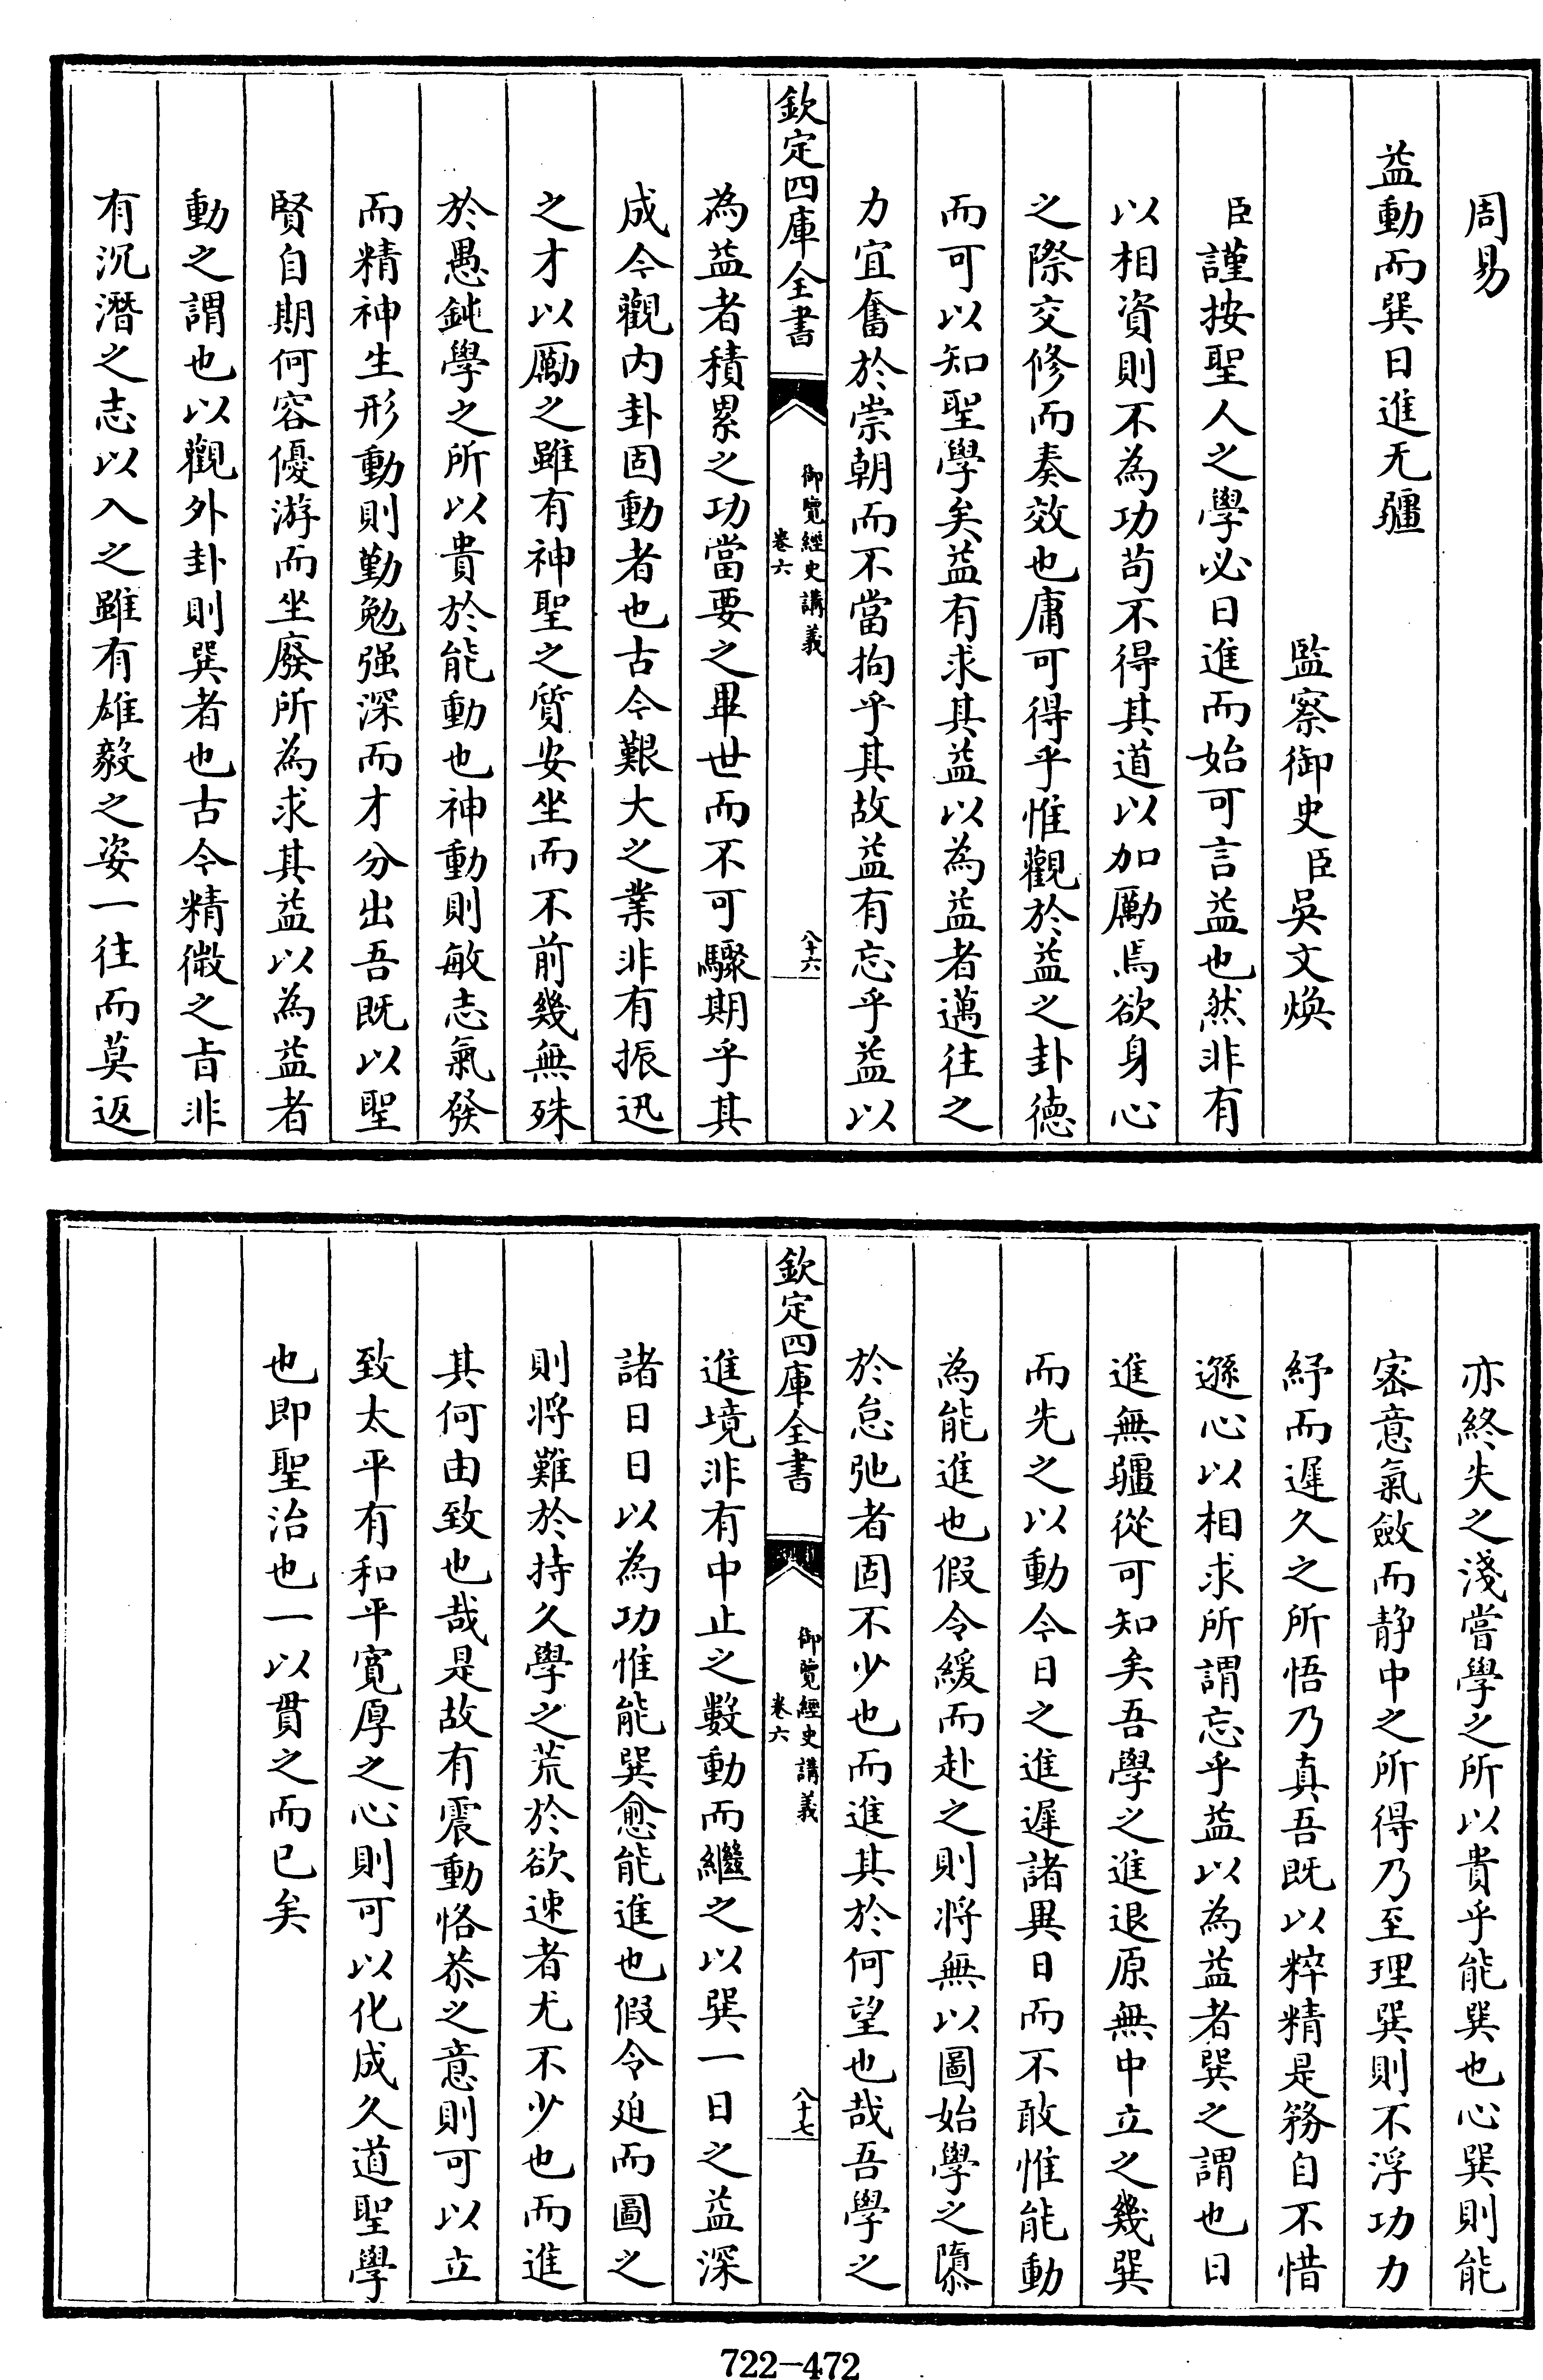 周易
益動而巽日進无疆
監察御史臣吳文煥
臣謹按聖人之學必日進而始可言益也然非有
以相資則不為功苟不得其道以加勵焉欲身心
之際交修而奏效也庸可得乎惟觀於益之卦德
而可以知聖學矣益有求其益以為益者邁往之
力宜奮於崇朝而不當拘乎其故益有忘乎益以
欽定四庫全書
御覽經史講義
卷六
八十六
為益者積累之功當要之畢世而不可驟期乎其
成今觀內卦固動者也古今艱大之業非有振迅
之才以勵之雖有神聖之質安坐而不前幾無殊
於愚鈍學之所以貴於能動也神動則敏志氣發
而精神生形動則勤勉强深而才分出吾既以聖
賢自期何容優游而坐廢所為求其益以為益者
動之謂也以觀外卦則巽者也古今精微之旨非
有沉潛之志以入之雖有雄毅之姿一往而莫返
亦終失之淺嘗學之所以貴乎能巽也心巽則能
密意氣斂而静中之所得乃至理巽則不浮功力
紓而遲久之所悟乃真吾既以粹精是務自不惜
遜心以相求所謂忘乎益以為益者巽之謂也日
進無疆從可知矣吾學之進退原無中立之幾巽
而先之以動今日之進遲諸異日而不敢惟能動
為能進也假令緩而赴之則將無以圖始學之隳
於怠弛者固不少也而進其於何望也哉吾學之
欽定四庫全書
御覽經史講義
卷六
八十七
進境非有中止之數動而繼之以巽一日之益深
諸日日以為功惟能巽愈能進也假令廹而圖之
則將難於持久學之荒於欲速者尤不少也而進
其何由致也哉是故有震動恪恭之意則可以立
致太平有和平寬厚之心則可以化成久道聖學
也即聖治也一以貫之而已矣
722-472